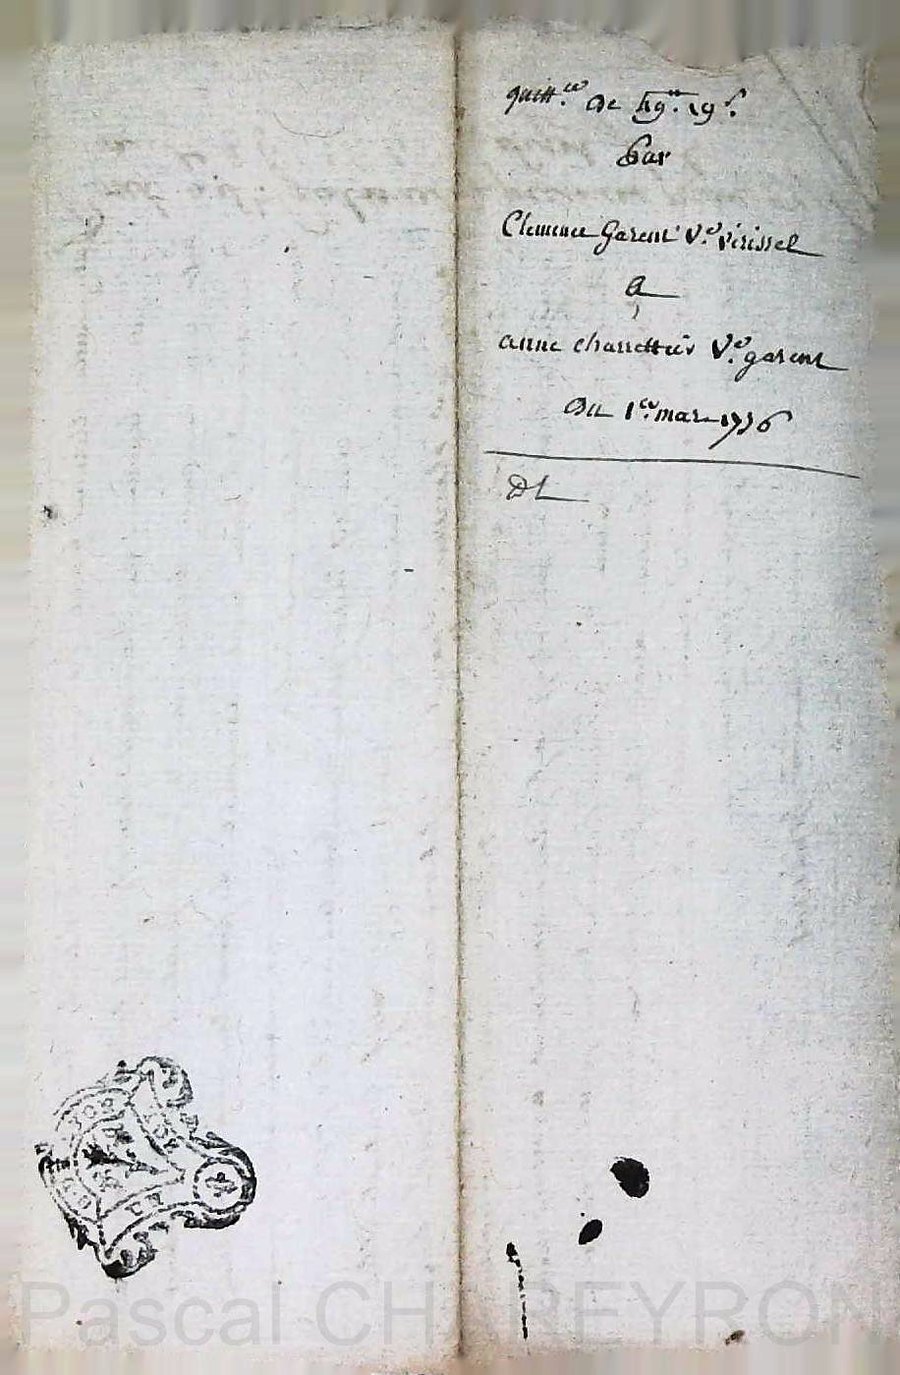 quitt.ce De 49.tt 19.s
Par
Clemence Garent V.e Virissel
A
anne charrettier V.e garent
Du 1.er mars 1736
DL
Pascal CHAREYRON